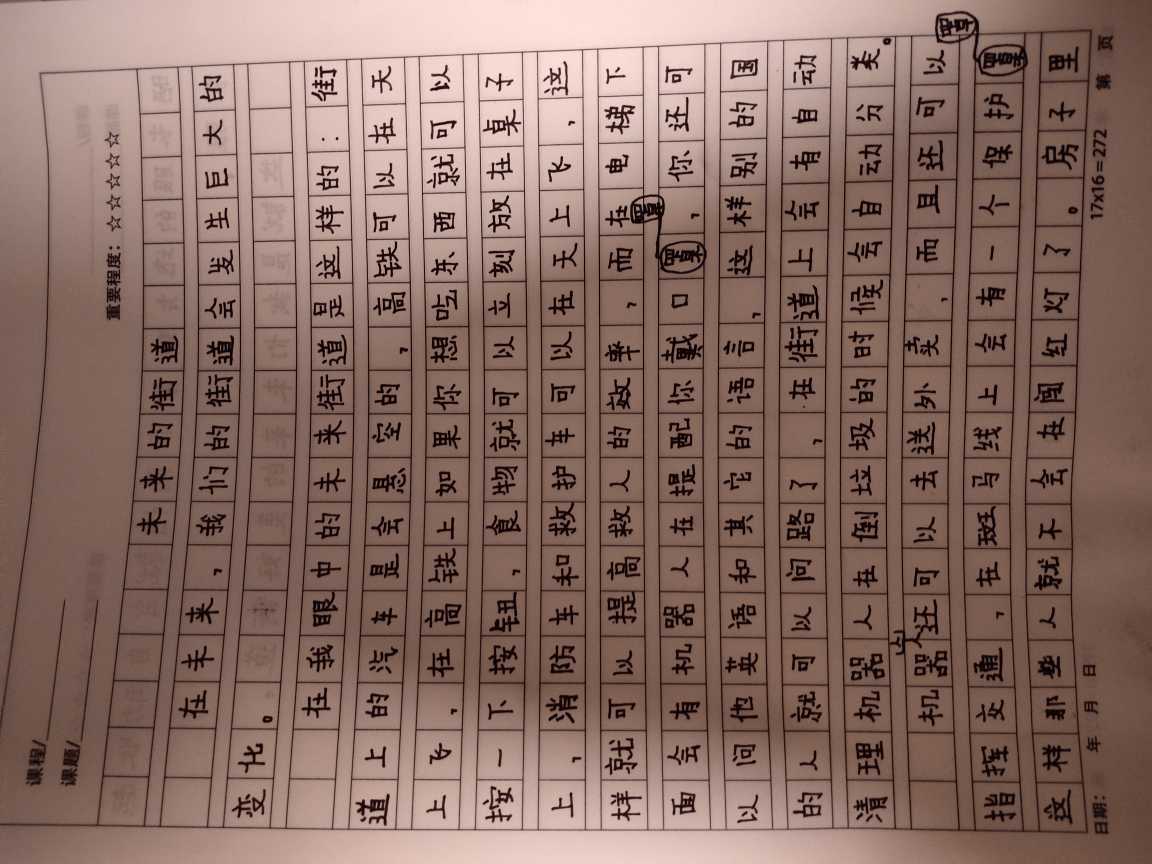 课程/
课题/
重要程度：☆☆☆☆☆
未来的街道
在未来，我们的街道会发生巨大的
变化。
在我眼中的未来街道是这样的：街
道上的汽车是会悬空的，高铁可以在天
上飞，在高铁上如果你想吃东西就可以
按一下按钮，食物就可以立刻放在桌子
上，消防车和救护车可以在天上飞，这
样就可以提高救人的效率，而在电梯下
面会有机器人在提配你戴口罩，你还可
以问他英语和其它的语言，这样别的国
的人就可以问路了，在街道上会有自动
清理机器人在倒垃圾的时候会自动分类。
机器人还可以去送外卖，而且还可以
指挥交通，在斑马线上会有一个保护罩
这样那些人就不会在闯红灯了。房子里
日期： 年 月 日 17x16=272 第 页